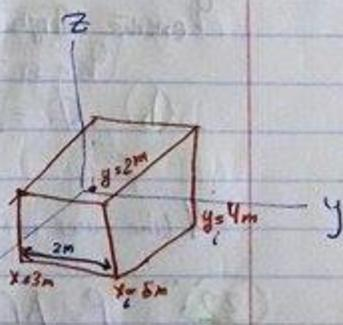 z
y=2m
y
y=4m
2m
x=3m
x=5m